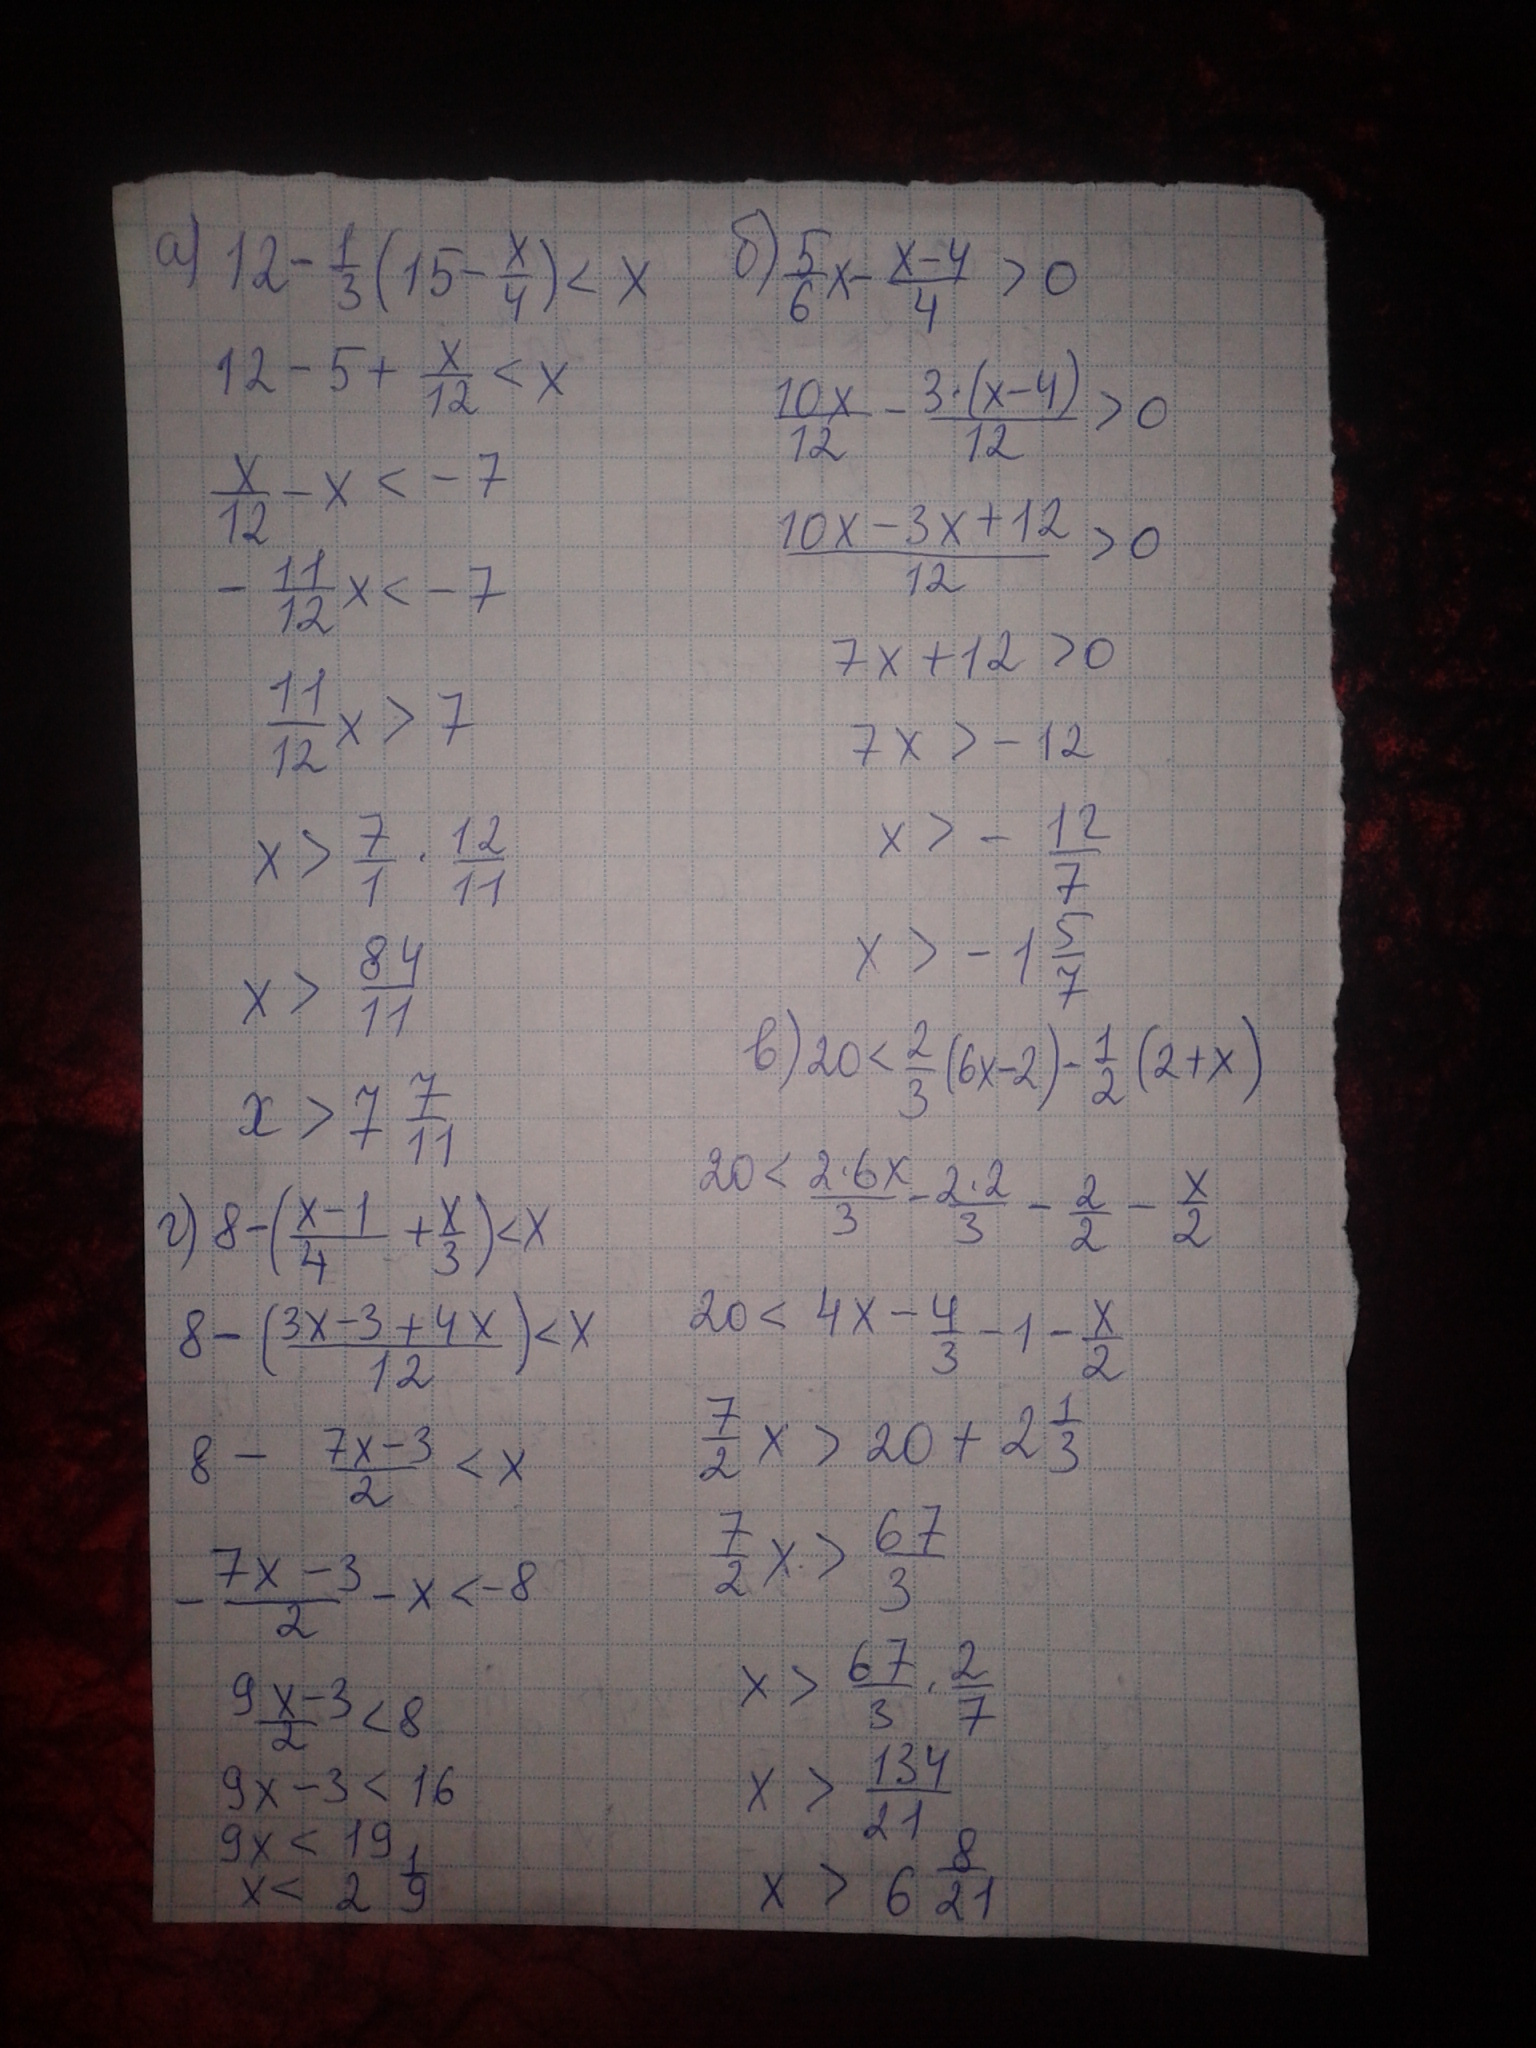 а) 12 - 1/3 (15 - x/4) < x
12 - 5 + x/12 < x
x/12 - x < -7
- 11/12 x < -7
11/12 x > 7
x > 7/1 · 12/11
x > 84/11
x > 7 7/11
г) 8 - ((x-1)/4 + x/3) < x
8 - ((3x-3+4x)/12) < x
8 - (7x-3)/2 < x
- (7x-3)/2 - x < -8
(9x-3)/2 < 8
9x - 3 < 16
9x < 19
x < 2 1/9
б) 5/6 x - (x-4)/4 > 0
10x/12 - 3·(x-4)/12 > 0
(10x-3x+12)/12 > 0
7x + 12 > 0
7x > -12
x > - 12/7
x > -1 5/7
в) 20 < 2/3 (6x-2) - 1/2 (2+x)
20 < 2·6x/3 - 2·2/3 - 2/2 - x/2
20 < 4x - 4/3 - 1 - x/2
7/2 x > 20 + 2 1/3
7/2 x > 67/3
x > 67/3 · 2/7
x > 134/21
x > 6 8/21